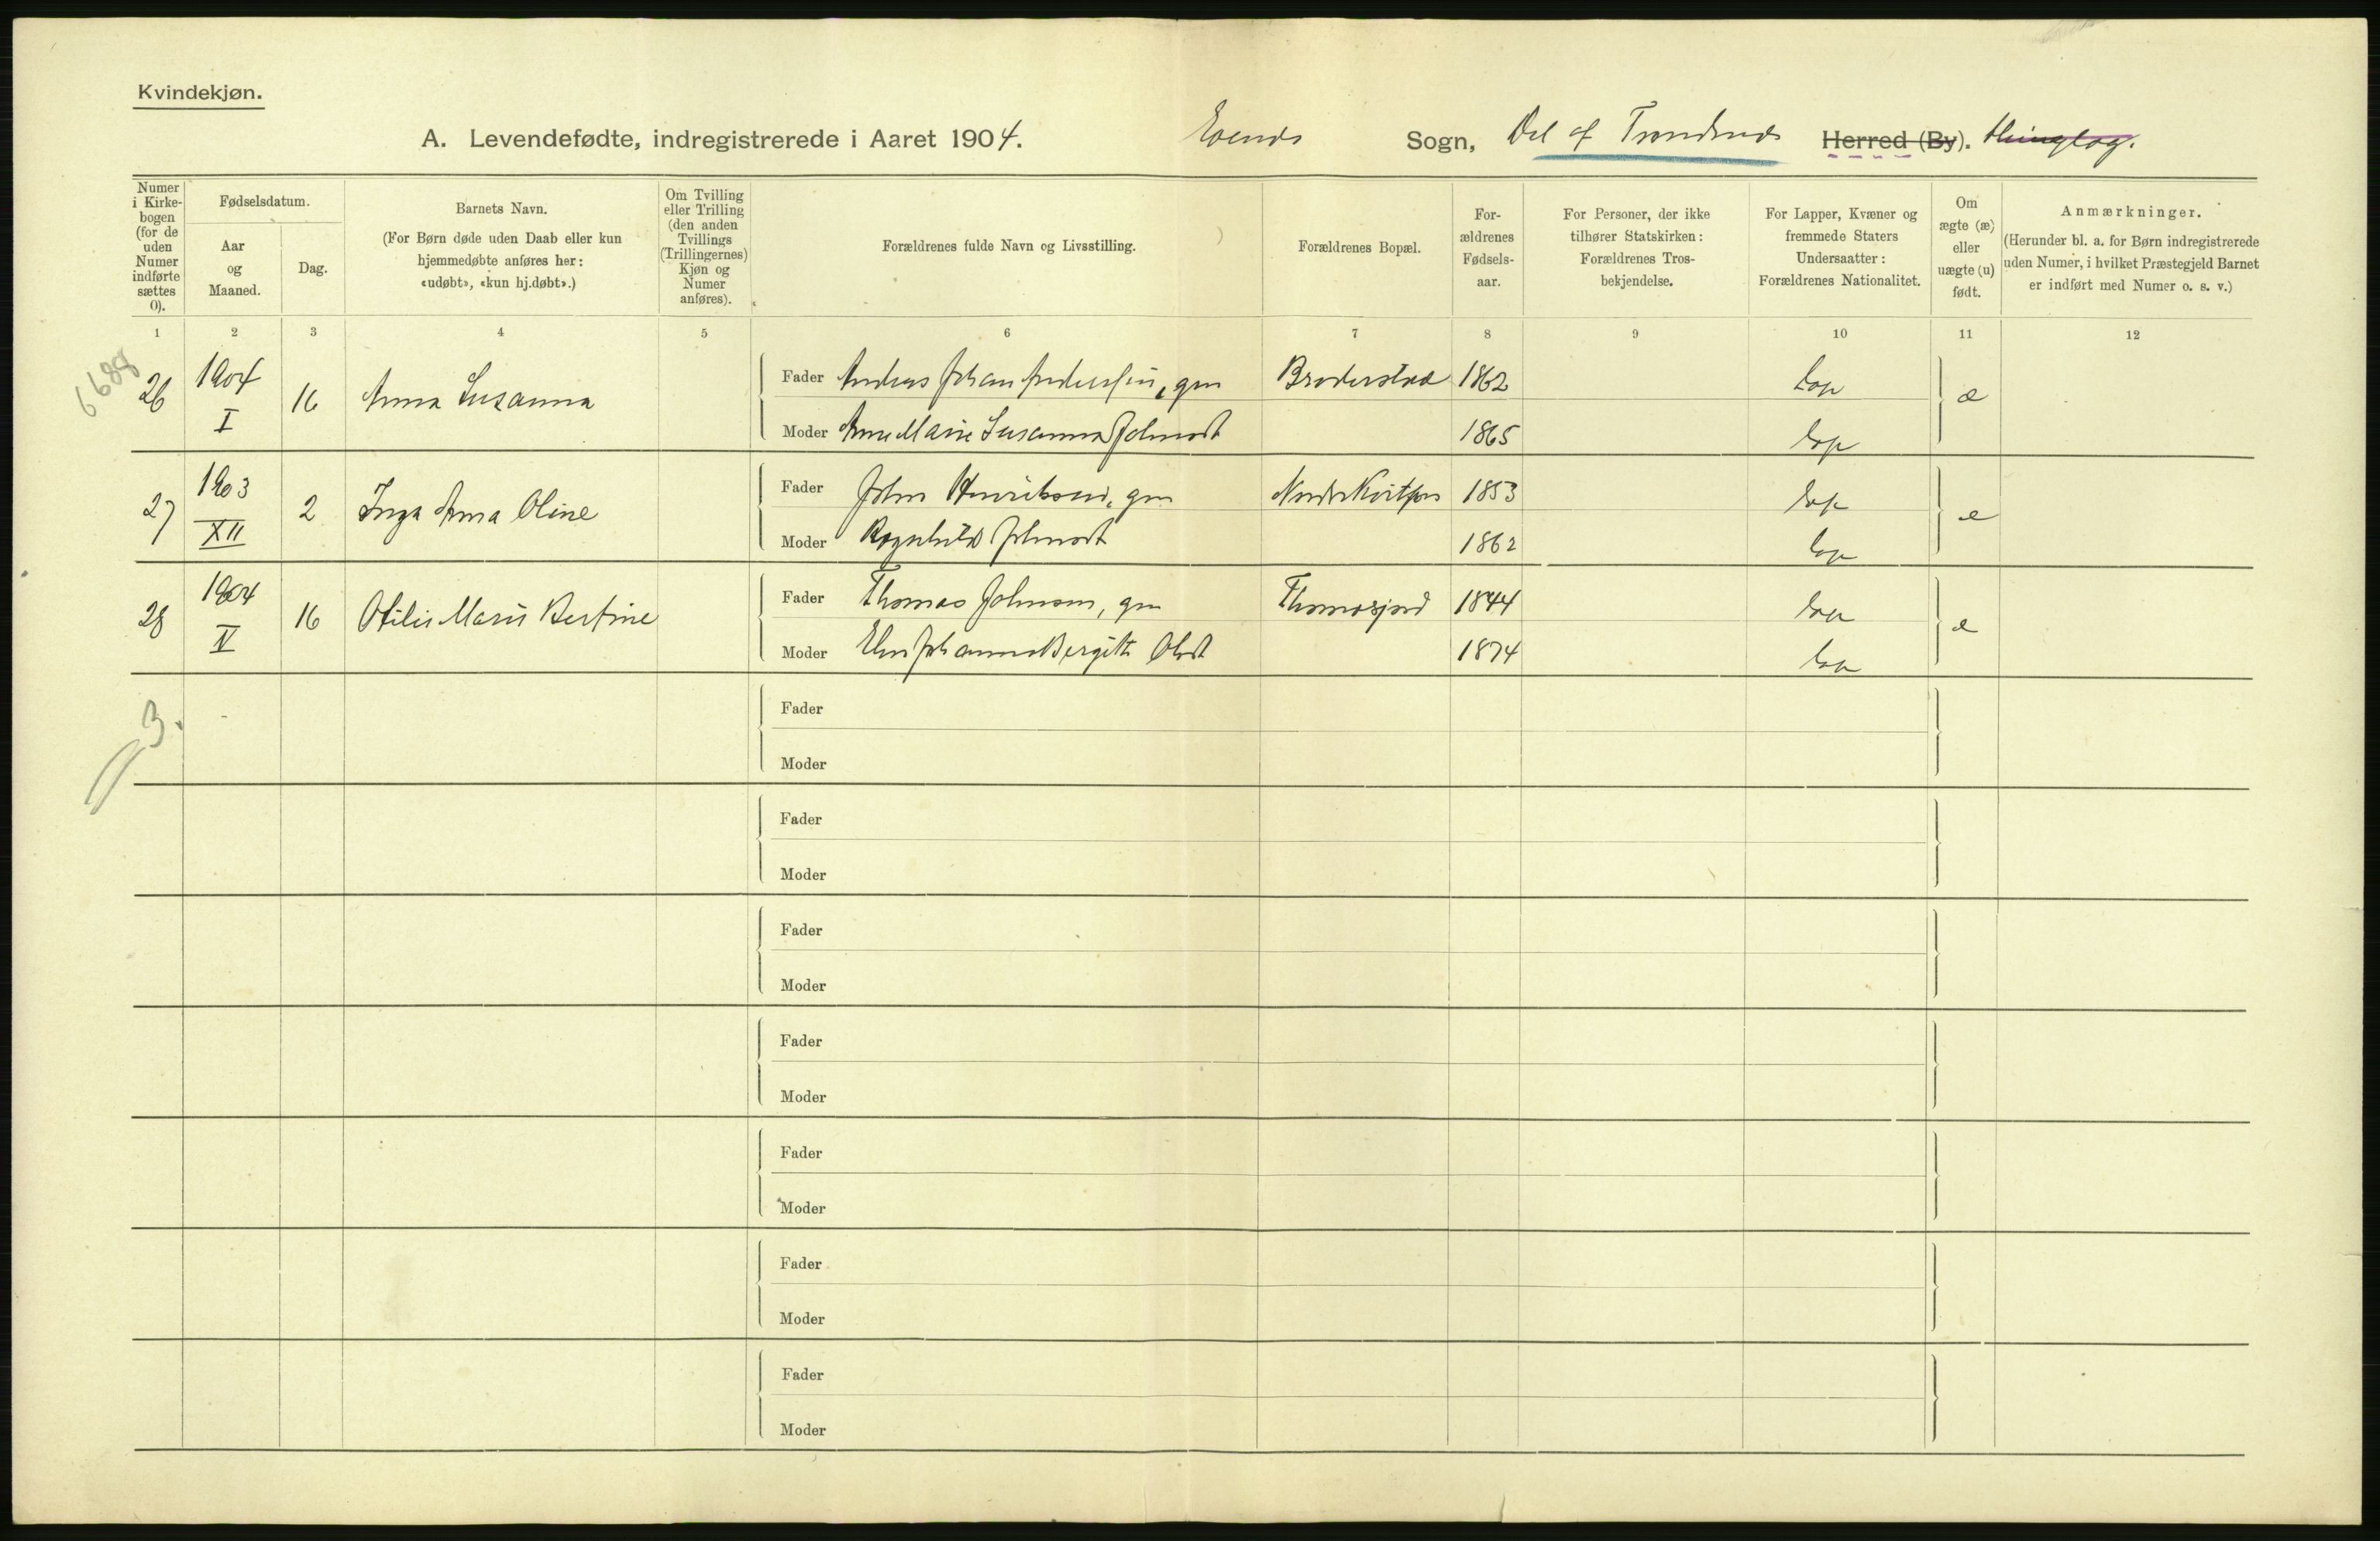 Kvindekjøn.
A. Levendefødte, indregistrerede i Aaret 1904. Evenes Sogn, Del af Trondenes Herred (By). thinglag.
Numer i Kirke-bogen (for de uden Numer indførte sættes 0).
Fødselsdatum.
Aar og Maaned.
Dag.
Barnets Navn.
(For Børn døde uden Daab eller kun
hjemmedøbte anføres her:
«udøbt», «kun hj.døbt».)
Om Tvilling
eller Trilling
(den anden
Tvillings
(Trillingernes)
Kjøn og
Numer
anføres).
Forældrenes fulde Navn og Livsstilling.
Forældrenes Bopæl.
For-
ældrenes
Fødsels-
aar.
For Personer, der ikke
tilhører Statskirken:
Forældrenes Tros-
bekjendelse.
For Lapper, Kvæner og
fremmede Staters
Undersaatter:
Forældrenes Nationalitet.
Om
ægte (æ)
eller
uægte (u)
født.
Anmærkninger.
(Herunder bl. a. for Børn indregistrerede
uden Numer, i hvilket Præstegjeld Barnet
er indført med Numer o. s. v.)
1 2 3 4 5 6 7 8 9 10 11 12
6688
26 1904 I 16 Anna Susanna
Fader Andreas Johan Andersen, gm Broderstad 1862 Lap æ
Moder Anne Marie Susanna Johnsdt 1865 Lap
27 1903 XII 2 Inga Anna Oline
Fader John Henriksen, gm 1853 Lap æ
Moder Ragnhild Johnsdt 1862 Lap
28 1904 IV 16 Otilie Marie Bertine
Fader Thomas Johnsen, gm Thomasjord 1844 Lap æ
Moder Elen Johanna Bergitte Olsdt 1874 Lap
3.
Fader
Moder
Fader
Moder
Fader
Moder
Fader
Moder
Fader
Moder
Fader
Moder
Fader
Moder